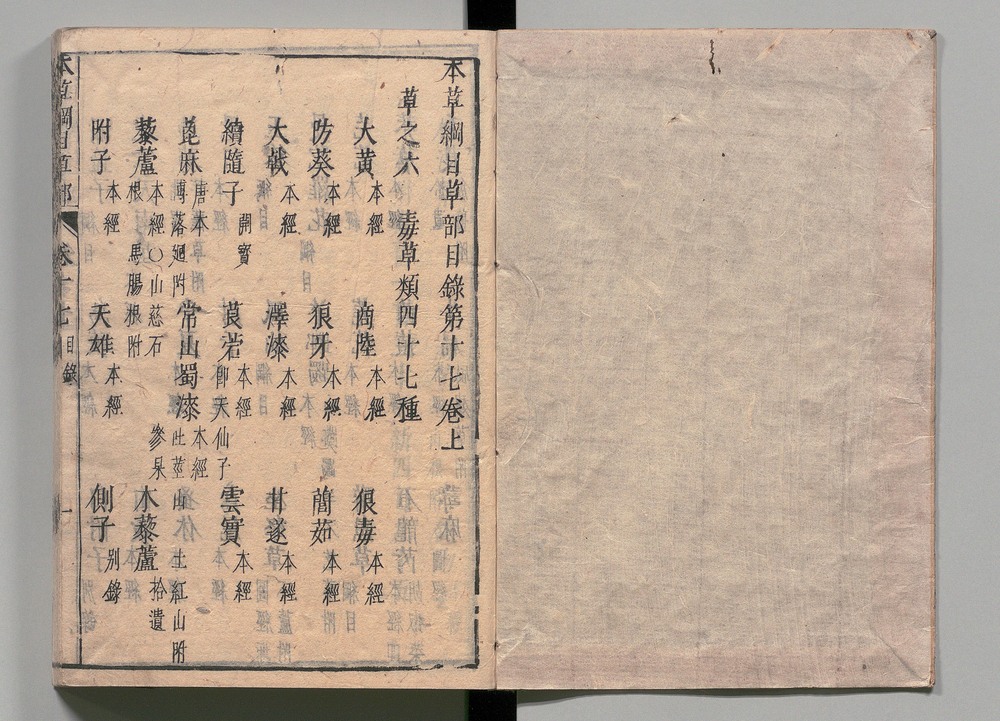 本草綱目草部目錄第十七卷上
草之六 毒草類四十七種
大黃 本經 商陸 本經 狼毒 本經
防葵 本經 狼牙 本經 䕡茹 本經
大戟 本經 澤漆 本經 甘遂 本經
續隨子 開寶 莨菪 本經 卽天仙子 雲實 本經
蓖麻 唐本 博落廻附 常山蜀漆 本經 杜莖山 土紅山附
藜蘆 本經○山慈石 參果根 馬腸根附 木藜蘆 拾遺
附子 本經 天雄 本經 側子 別錄
本草綱目草部 卷十七目錄 一